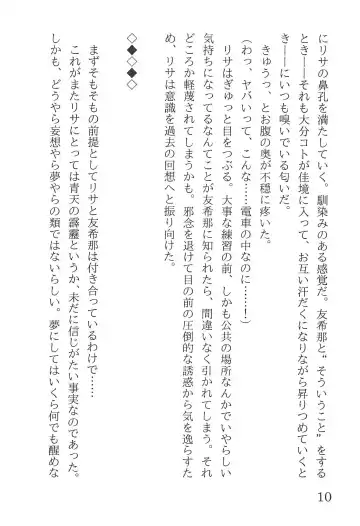 にリサの鼻孔を満たしていく。馴染みのある感覚だ。友希那と〝そういうこと〟をする
とき――それも大分コトが佳境に入って、お互い汗だくになりながら昇りつめていくと
き――にいつも嗅いでいる匂いだ。
きゅうっ、とお腹の奥が不穏に疼いた。
（わっ、ヤバいって、こんな……電車の中なのに……！）
リサはぎゅっと目をつぶる。大事な練習の前、しかも公共の場所なんかでいやらしい
気持ちになってるなんてことが友希那に知られたら、間違いなく引かれてしまう。それ
どころか軽蔑されてしまうかも。邪念を退けて目の前の圧倒的な誘惑から気を逸らすた
め、リサは意識を過去の回想へと振り向けた。
◇◆◇◆◇
まずそもそもの前提としてリサと友希那は付き合っているわけで……
これがまたリサにとっては青天の霹靂というか、未だに信じがたい事実なのであった。
しかも、どうやら妄想やら夢やらの類ではないらしい。夢にしてはいくら何でも醒めな
10